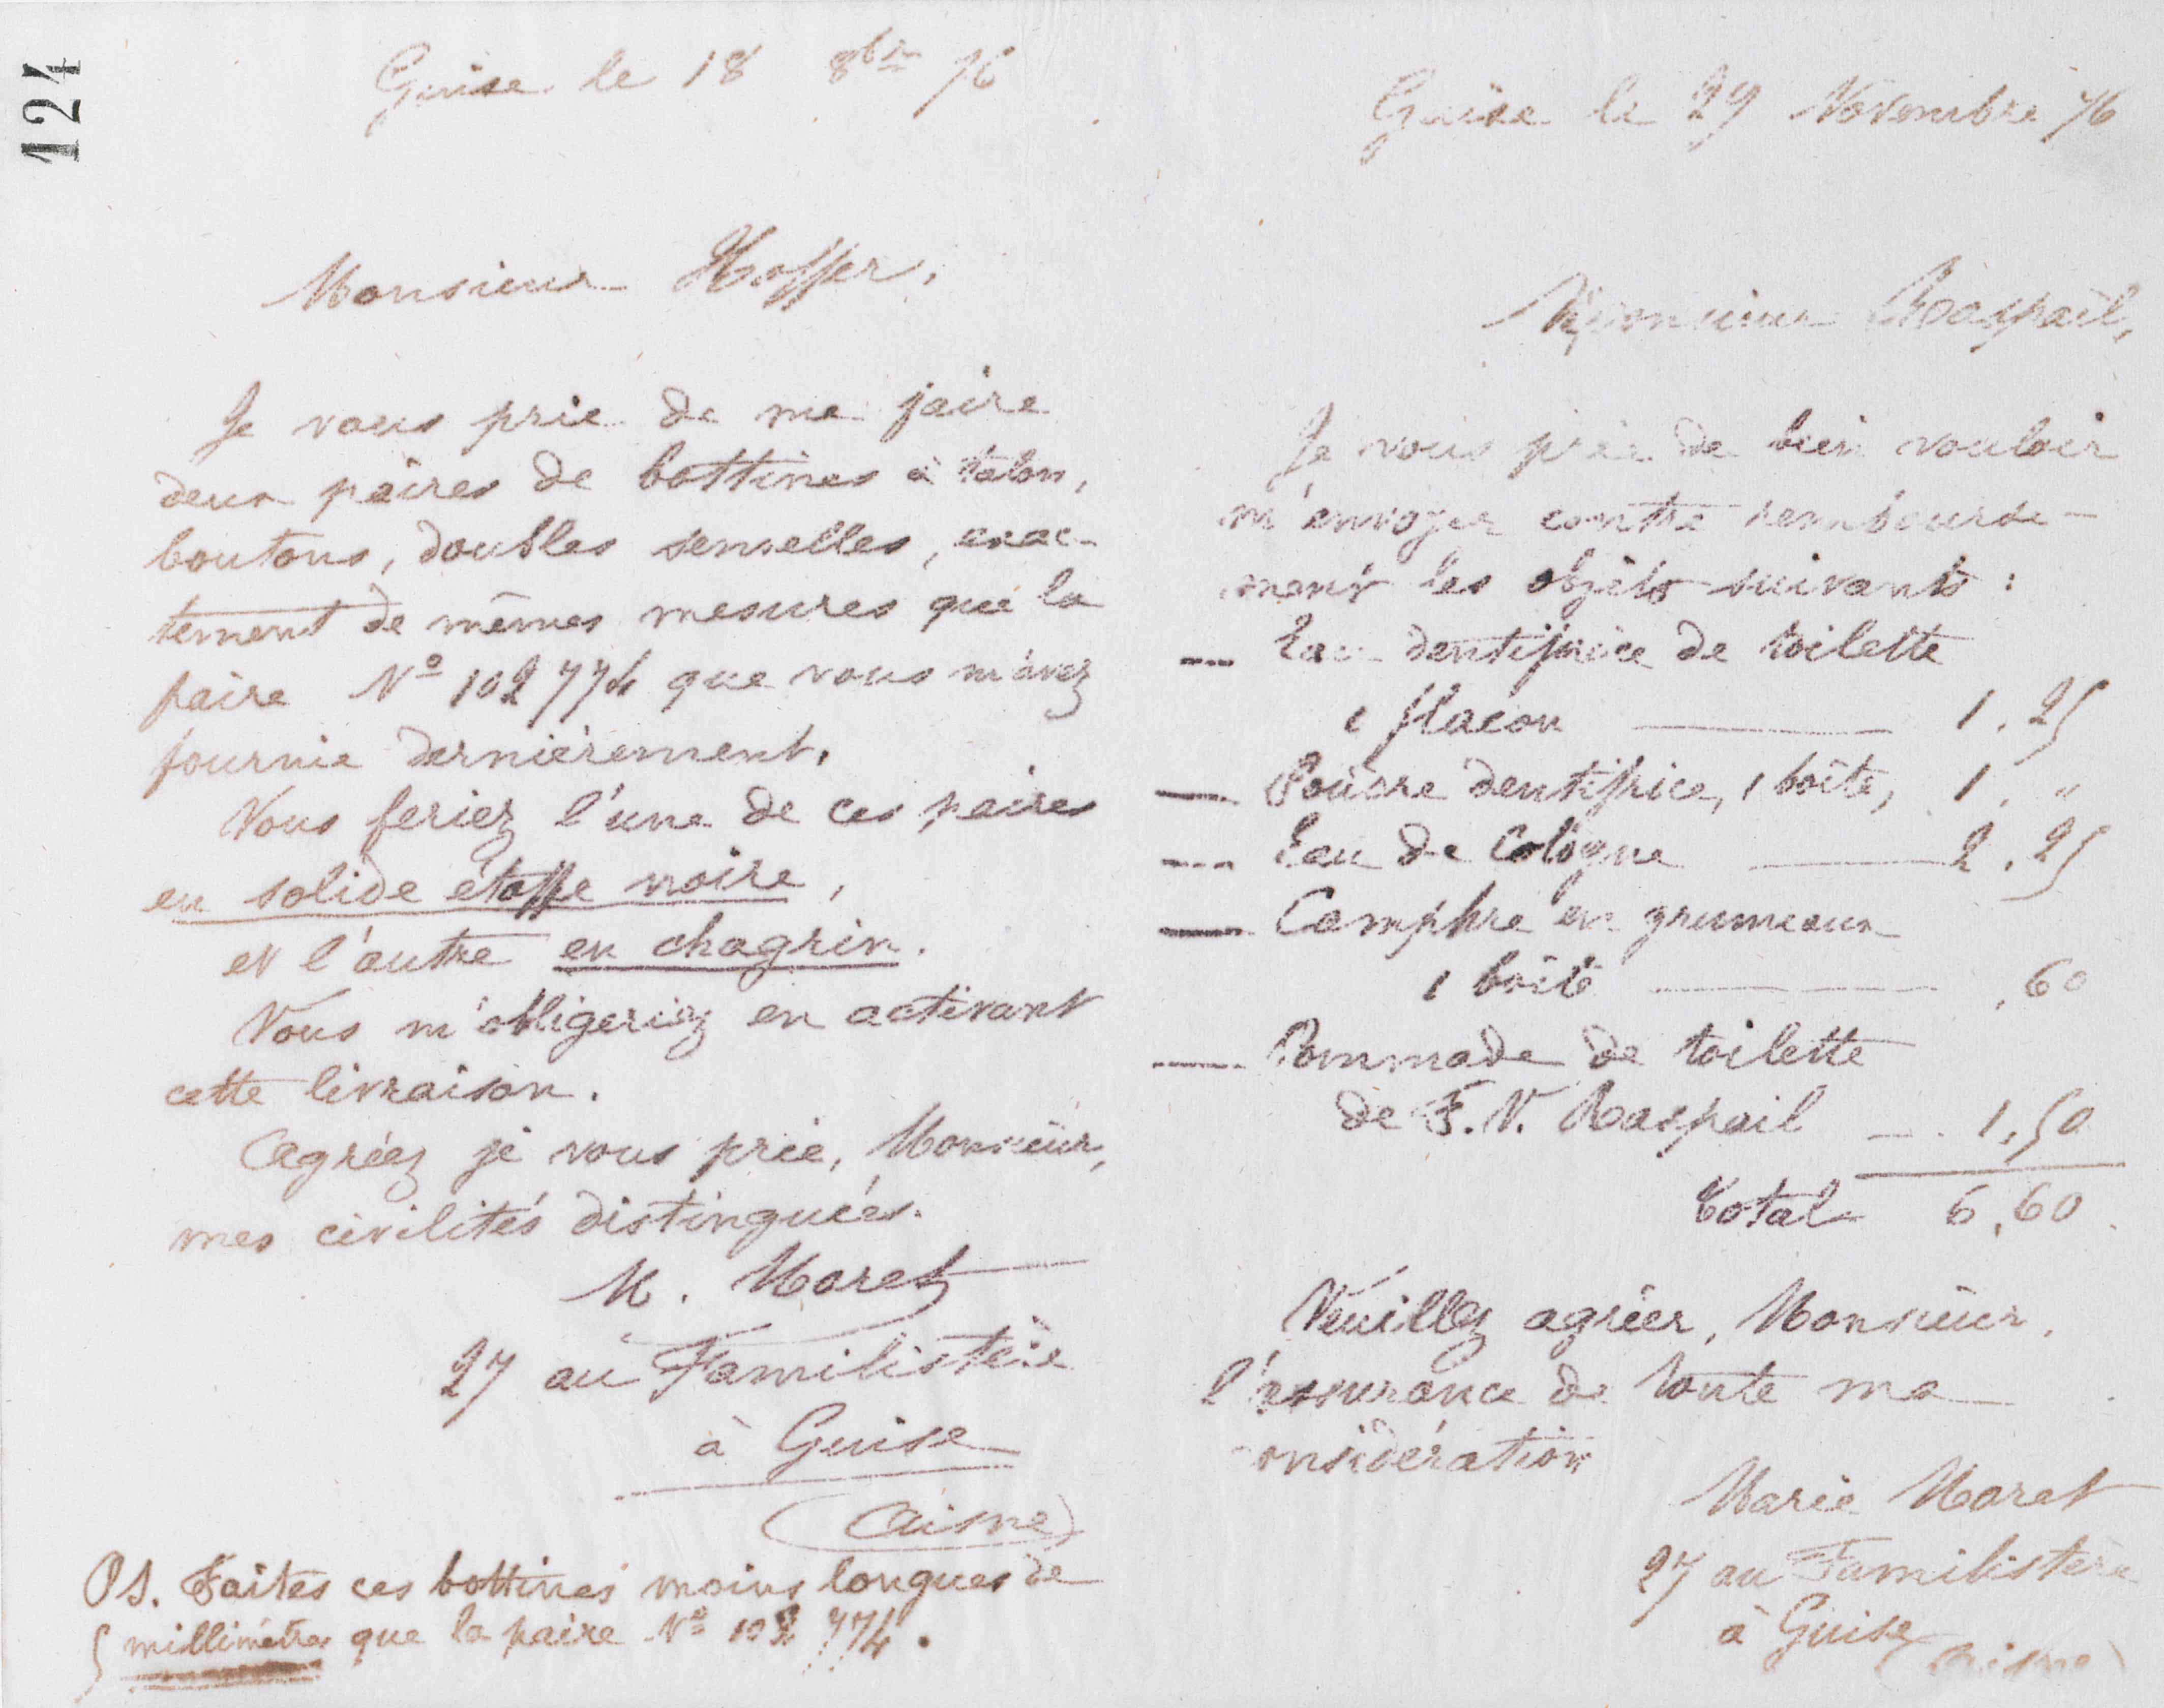 124
Guise le 18 8bre 76
Monsieur Hoffer,
Je vous prie de me faire
deux paires de bottines à talon,
boutons, doubles semelles, exac-
tement de mêmes mesures que la
paire No 102774 que vous m'avez
fournie dernièrement.
Vous feriez l'une de ces paires
en solide étoffe noire,
et l'autre en chagrin.
Vous m'obligeriez en activant
cette livraison.
Agréez je vous prie, Monsieur,
mes civilités distinguées.
M. Moret
27 au Familistère
à Guise
(Aisne)
PS. Faites ces bottines moins longues de
5 millimètres que la paire No 102 774.
Guise le 29 Novembre 76
Monsieur Raspail,
Je vous prie de bien vouloir
m'envoyer contre rembourse-
ment les objets suivants :
— Eau dentifrice de toilette
1 flacon — 1.25
— Poudre dentifrice, 1 boîte, 1. "
— Eau de Cologne — 2.25
— Camphre en grumeaux
1 boîte — .60
— Pommade de toilette
de F.V. Raspail — 1,50
Total 6,60
Veuillez agréer, Monsieur,
l'assurance de toute ma
considération
Marie Moret
27 au Familistère
à Guise (Aisne)